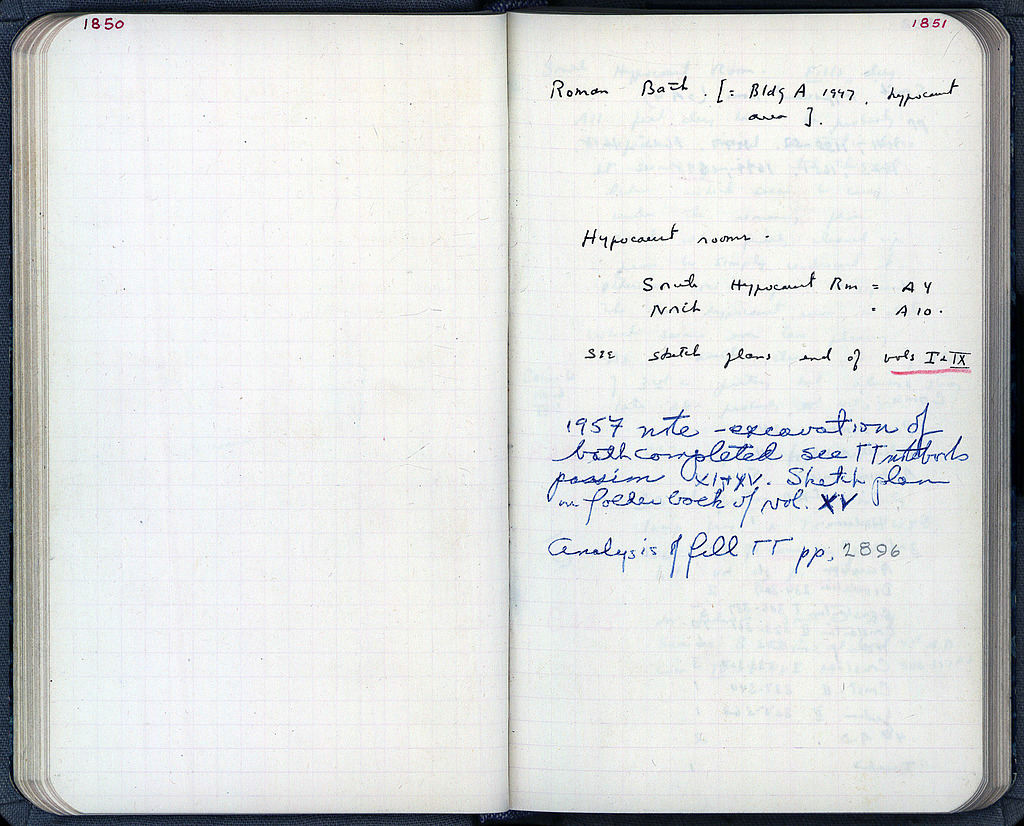 1850
1851
Roman Bath. [= Bldg A 1947, hypocaust
area ].
Hypocaust rooms.
South Hypocaust Rm = A 4
North " = A 10.
SEE sketch plans end of vols I & IX
1957 note - excavation of
both completed see TT notebooks
passim XI + XV. Sketch plan
in folder back of vol. XV
Analysis of fill TT pp. 2896